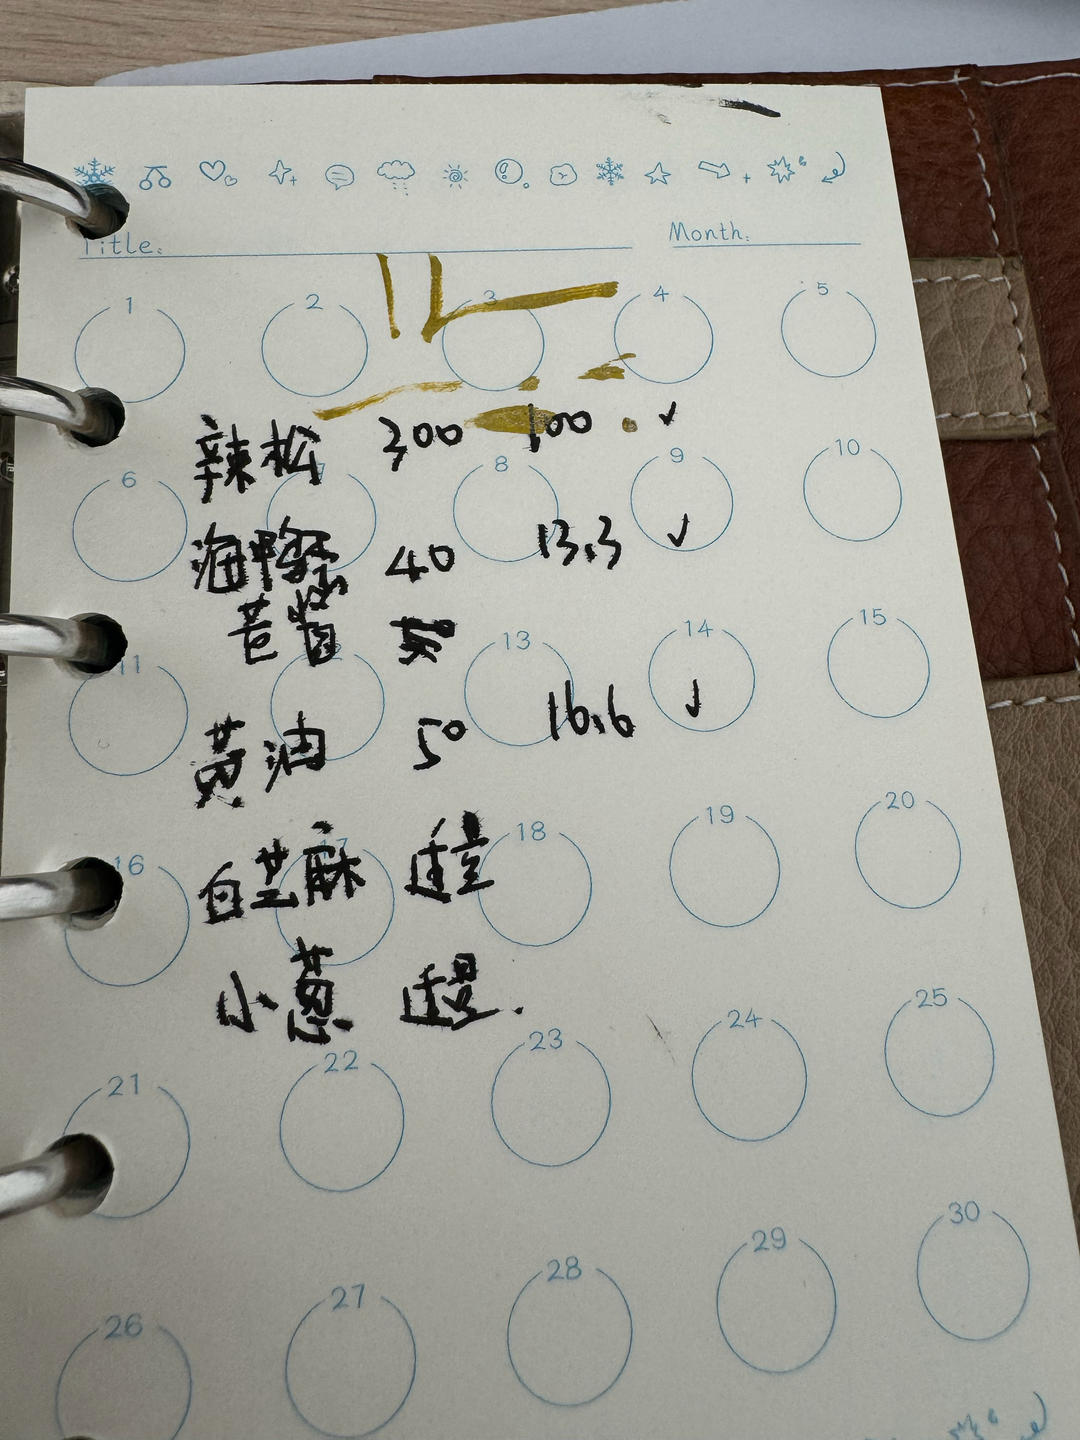 Title:
Month:
1 2 3 4 5
辣松 300 100 ✓
6 7 8 9 10
海鸭蛋 40 13.3 ✓
11 13 14 15
黄油 50 16.6 ✓
16 17 18 19 20
白芝麻 适量
小葱 适量.
21 22 23 24 25
26 27 28 29 30